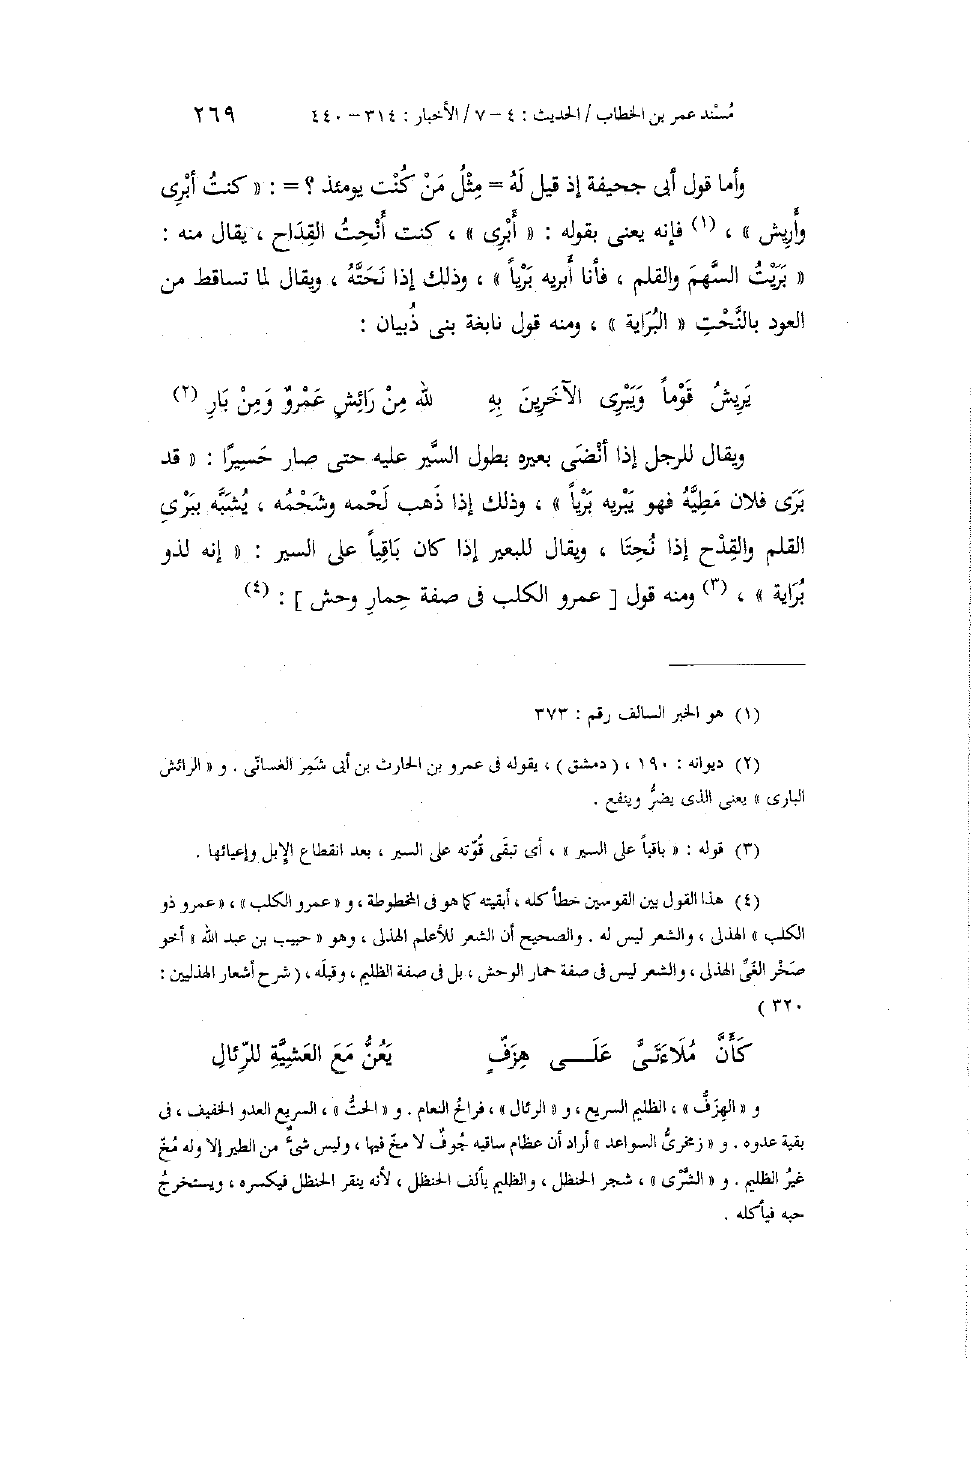 مُسْند عمر بن الخطاب / الحديث : ٤ - ٧ / الأخبار : ٣١٤ - ٤٤٠ ٢٦٩
وأما قول أبى جحيفة إذ قيل لَهُ = مِثْلُ مَنْ كُنْت يومئذ ؟ = : « كنتُ أَبْرِى
وأَرِيش » ، (١) فإنه يعنى بقوله : « أَبْرِى » ، كنت أَنْحِتُ القِدَاح ، يقال منه :
« بَرَيْتُ السَّهمَ والقلم ، فأنا أَبريه بَرْياً » ، وذلك إذا نَحَتَّهُ ، ويقال لما تساقط من
العود بالنَّحْتِ « البُرَاية » ، ومنه قول نابغة بنى ذُبيان :
يَرِيشُ قَوْماً وَيَبْرِى الآخَرِينَ بِهِ لله مِنْ رَائِشٍ عَمْروٌ وَمِنْ بَارِ (٢)
ويقال للرجل إذا أنْضَى بعيره بطول السَّير عليه حتى صار حَسِيرًا : « قد
بَرَى فلان مَطِيَّهُ فهو يَبْرِيه بَرْياً » ، وذلك إذا ذَهب لَحْمه وشَحْمُه ، يُشبَّه بِبَرْىِ
القلم والقِدْح إذا نُحِتَا ، ويقال للبعير إذا كان بَاقِياً على السير : « إنه لذو
بُرَاية » ، (٣) ومنه قول [ عمرو الكلب فى صفة حِمارِ وحش ] : (٤)
(١) هو الخبر السالف رقم : ٣٧٣
(٢) ديوانه : ١٩٠ ، ( دمشق ) ، يقوله فى عمرو بن الحارث بن أبى شَمِر الغسانّى . و « الرائش
البارى » يعنى الذى يضرُّ وينفع .
(٣) قوله : « باقياً على السير » ، أى تبقَى قُوّته على السير ، بعد انقطاع الإبل وإعيائها .
(٤) هذا القول بين القوسين خطأ كله ، أبقيته كما هو فى المخطوطة ، و « عمرو الكلب » ، « عمرو ذو
الكلب » الهذلى ، والشعر ليس له . والصحيح أن الشعر للأعلم الهذلى ، وهو « حبيب بن عبد الله » أخو
صَخْر الغَىّ الهذلى ، والشعر ليس فى صفة حمار الوحش ، بل فى صفة الظليم ، وقبلَه ، ( شرح أشعار الهذليين :
٣٢٠ )
كَأَنَّ مُلَاءَتَىَّ عَلَــى هِزَفٍّ يَعُنُّ مَعَ العَشِيَّةِ للرِّئالِ
و « الهِزَفُّ » ، الظليم السريع ، و « الرئال » ، فراخُ النعام . و « الحتُّ » ، السريع العدو الخفيف ، فى
بقية عدوه . و « زمخرىُّ السواعد » أراد أن عظام ساقيه جُوفٌ لا مخّ فيها ، وليس شىءٌ من الطير إلا وله مُخّ
غيرُ الظليم . و « الشَّرْى » ، شجر الحنظل ، والظليم يألف الحنظل ، لأنه ينقر الحنظل فيكسره ، ويستخرجُ
حبه فيأكله .